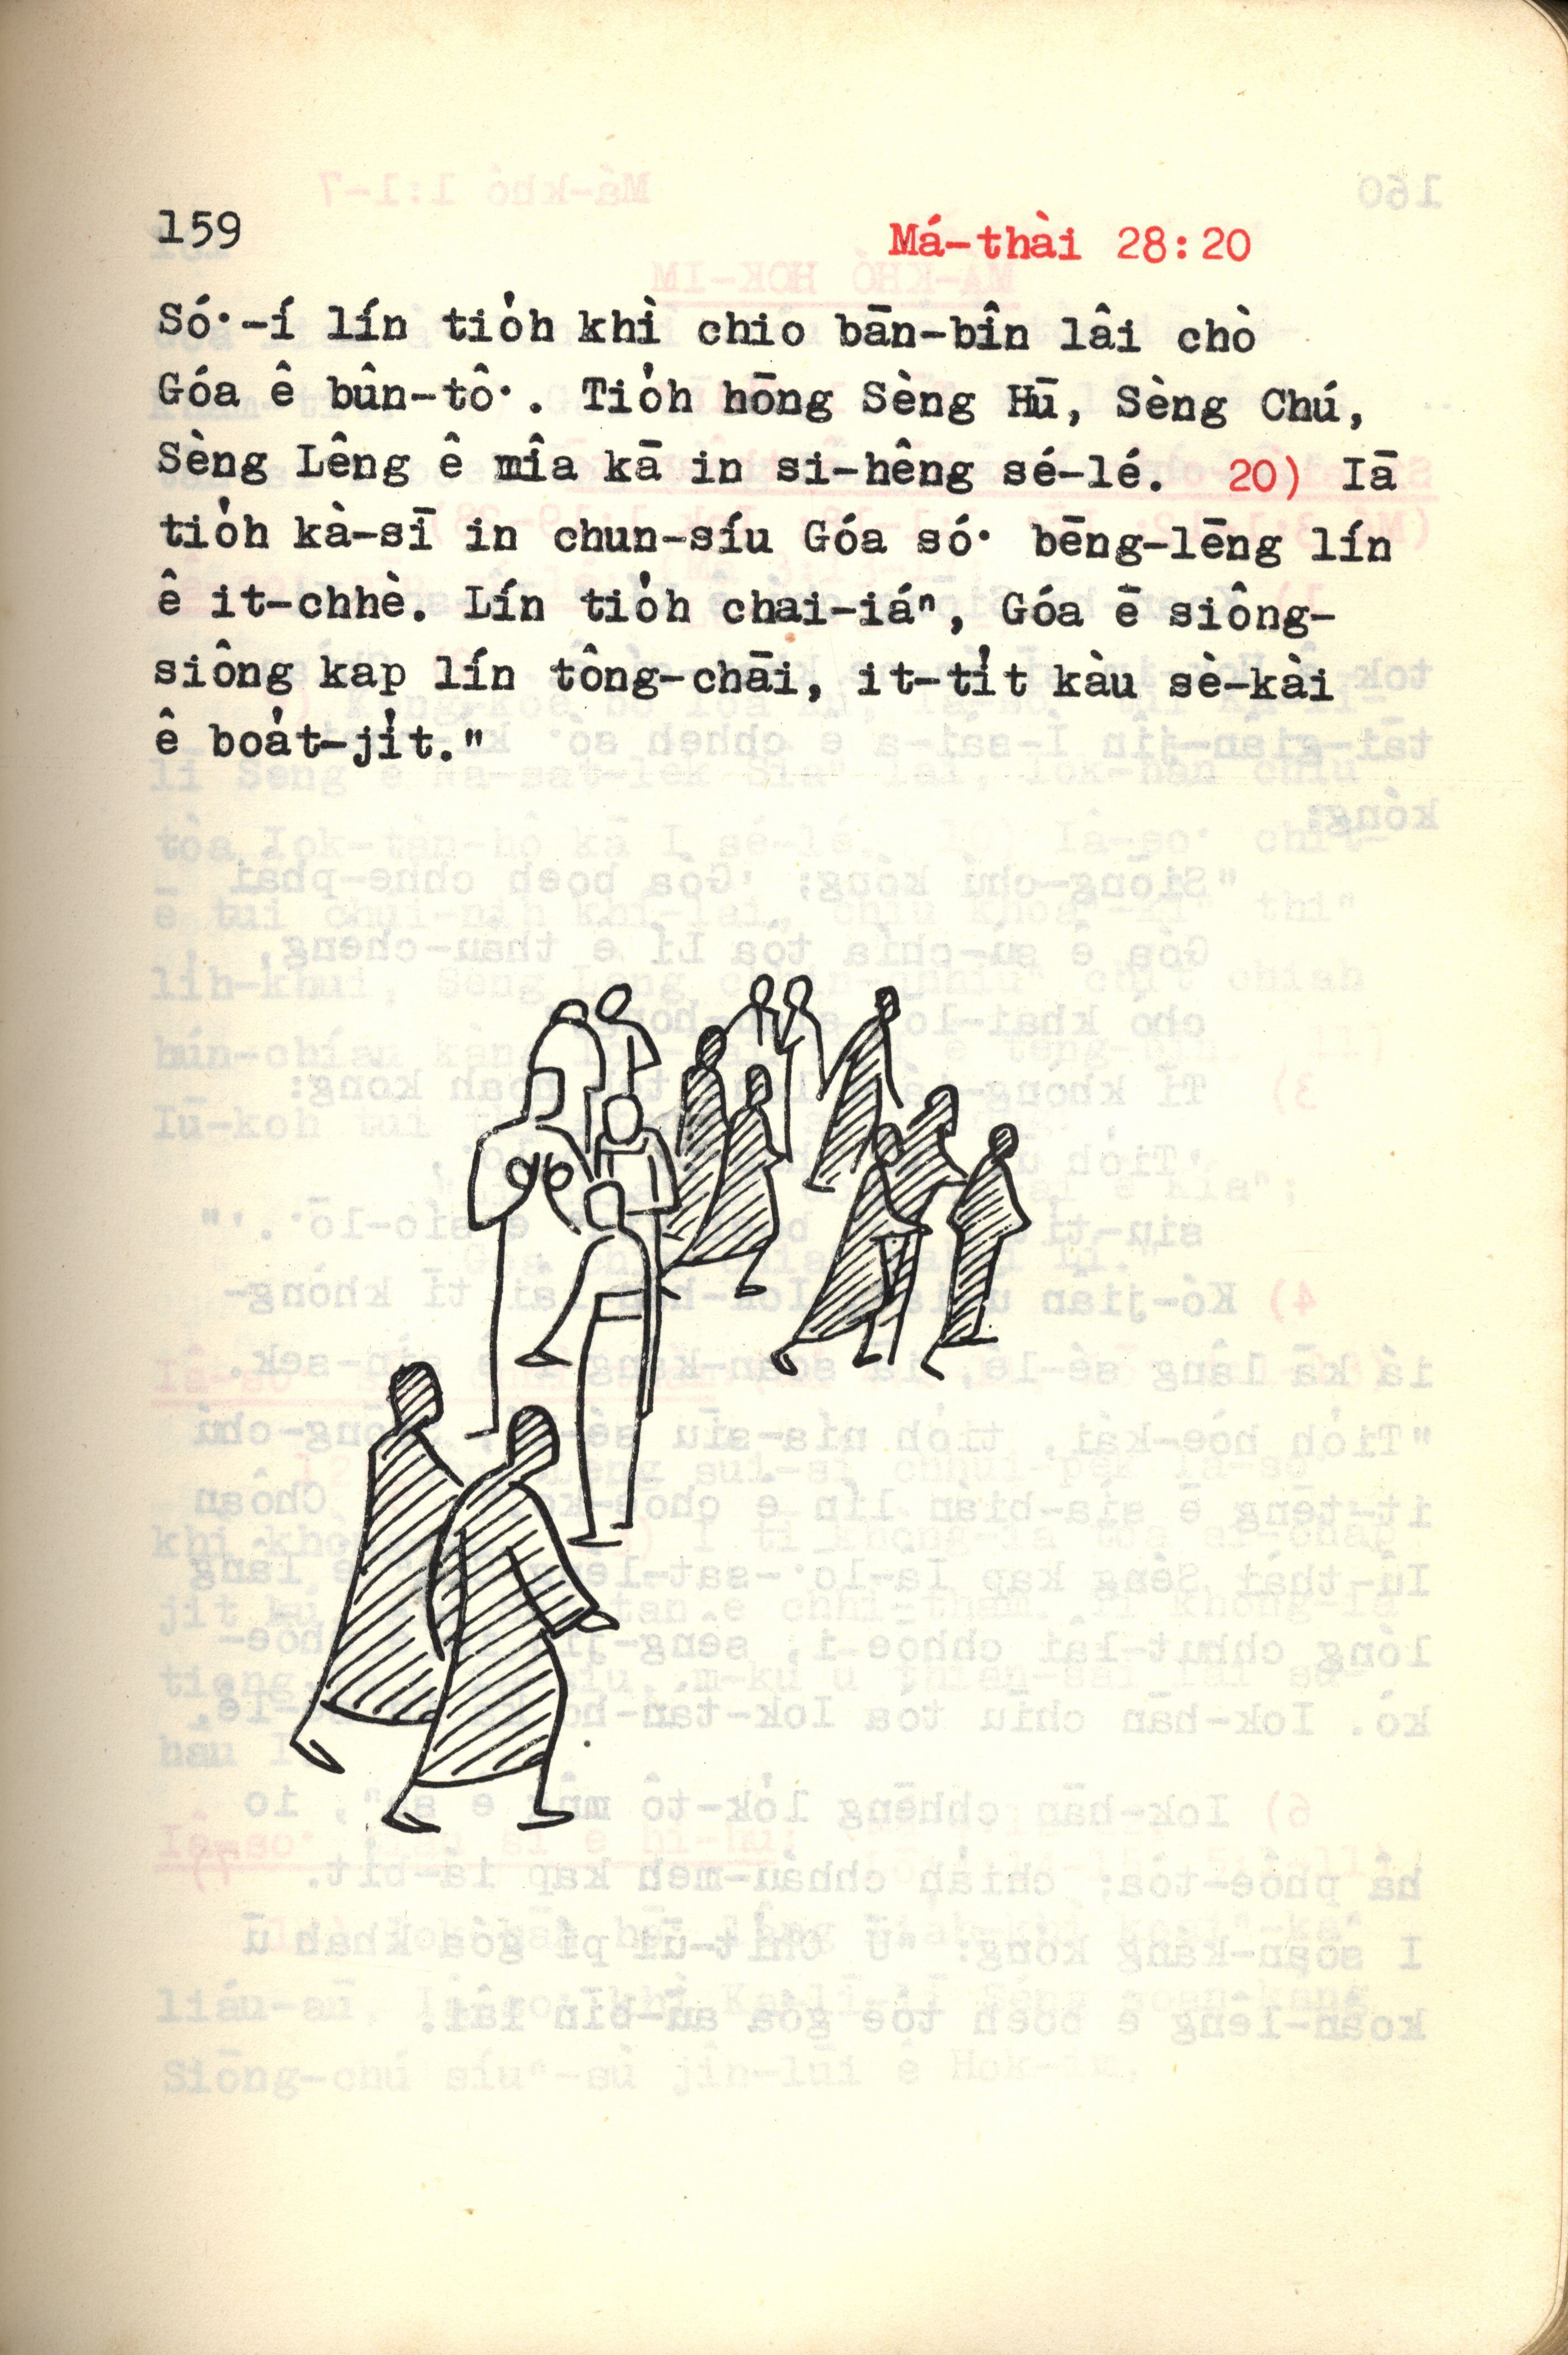 159 Má-thài 28:20
Só͘-í lín tio̍h khì chio bān-bîn lâi chò
Góa ê bûn-tô͘. Tio̍h hōng Sèng Hū, Sèng Chú,
Sèng Lêng ê mîa kā in si-hêng sé-lé. 20) Iā
tio̍h kà-sī in chun-síu Góa só͘ bēng-lēng lín
ê it-chhè. Lín tio̍h chai-iáⁿ, Góa ē siông-
siông kap lín tông-chāi, it-ti̍t kàu sè-kài
ê boa̍t-ji̍t."